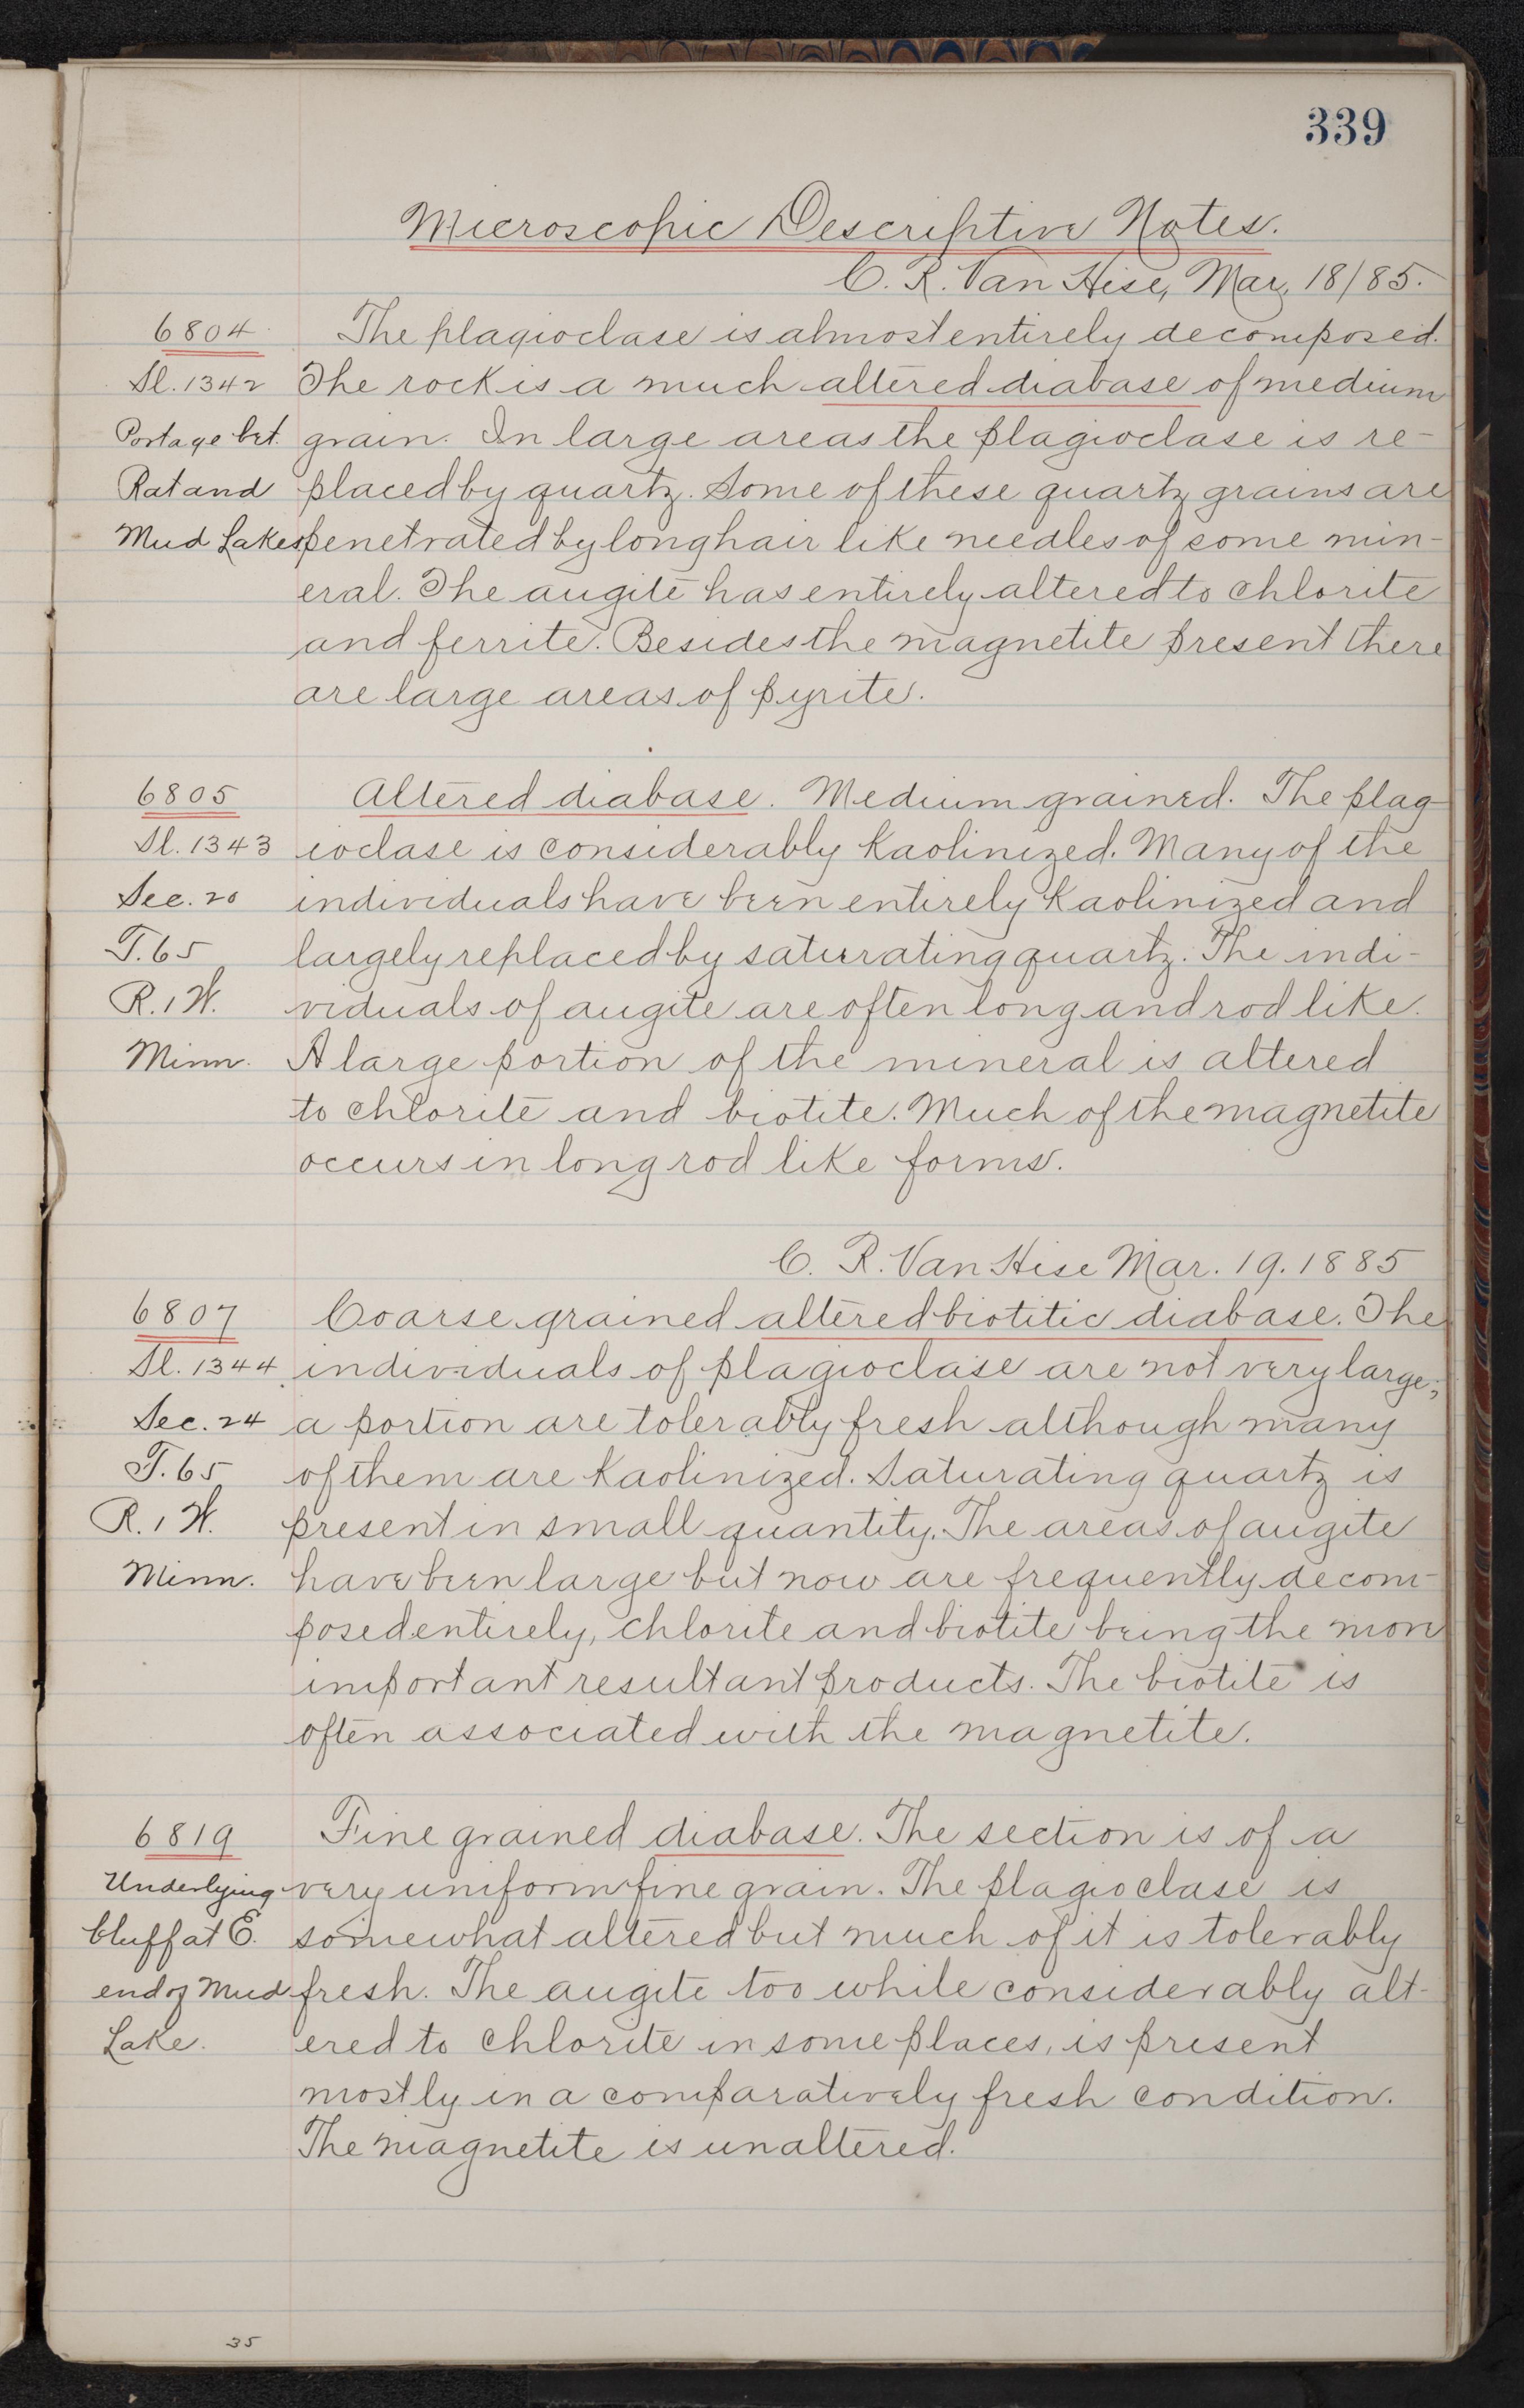 339
Microscopic Descriptive Notes.
C. R. Van Hise, Mar. 18/85.
6804 The plagioclase is almost entirely decomposed.
Sl. 1342 The rock is a much altered diabase of medium
Portage bet. grain. In large areas the plagioclase is re-
Rat and placed by quartz. Some of these quartz grains are
Mud Lakes penetrated by long hair like needles of some min-
eral. The augite has entirely altered to chlorite
and ferrite. Besides the magnetite present there
are large areas of pyrite.
6805 Altered diabase. Medium grained. The plag-
Sl. 1343 ioclase is considerably kaolinized. Many of the
Sec. 20 individuals have been entirely kaolinized and
T. 65 largely replaced by saturating quartz. The indi-
R. 1 W. viduals of augite are often long and rod like.
Minn. A large portion of the mineral is altered
to chlorite and biotite. Much of the magnetite
occurs in long rod like forms.
C. R. Van Hise Mar. 19. 1885
6807 Coarse grained altered biotitic diabase. The
Sl. 1344 individuals of plagioclase are not very large;
Sec. 24 a portion are tolerably fresh although many
T. 65 of them are kaolinized. Saturating quartz is
R. 1 W. present in small quantity. The areas of augite
Minn. have been large but now are frequently decom-
posed entirely, chlorite and biotite being the more
important resultant products. The biotite is
often associated with the magnetite.
6819 Fine grained diabase. The section is of a
Underlying very uniform fine grain. The plagioclase is
bluff at E. somewhat altered but much of it is tolerably
end of Mud fresh. The augite too while considerably alt-
Lake. ered to chlorite in some places, is present
mostly in a comparatively fresh condition.
The magnetite is unaltered.
35